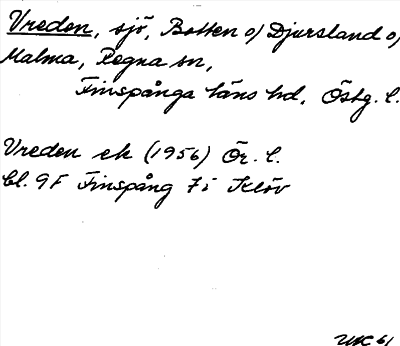 Vreden, sjö, Botten o/ Djursland o/
Malma, Regna sn,
Finspånga läns hd, Östg. l.
Vreden ek (1956) Ör. l.
bl. 9F Finspång 7i Klöv